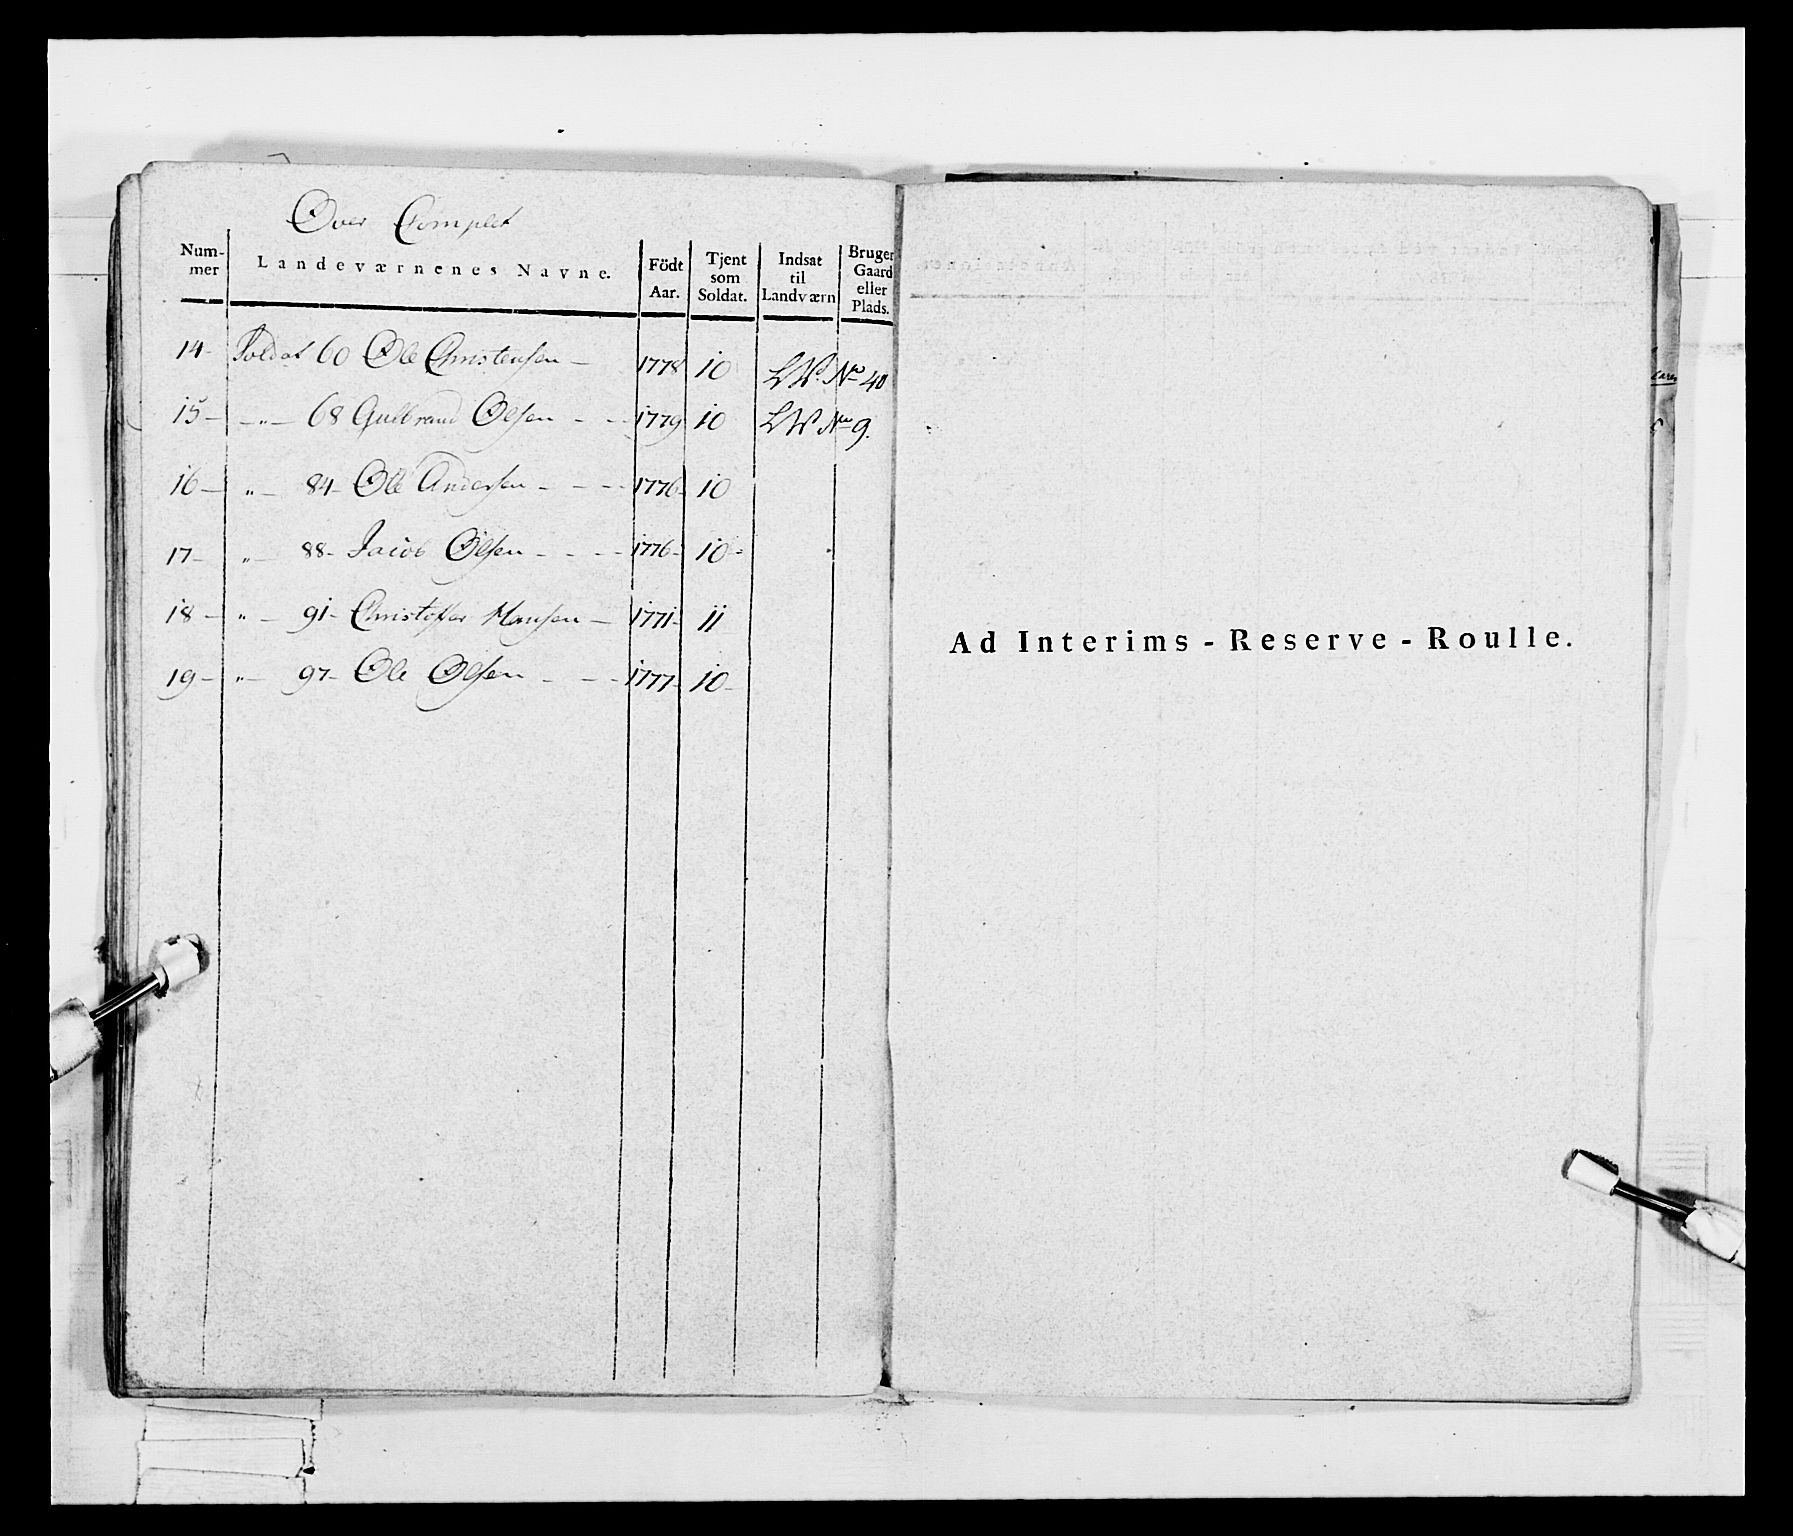 Over Complet
Num-
mer
Landeværnenes Navne.
Födt
Aar.
Tjent
som
Soldat.
Indsat
til
Landværn
Bruger
Gaard
eller
Plads.
14- Soldat 60 Ole Christensen - 1778 10 LW. No 40
15- -"- 68 Gulbrand Olsen - - - 1779 10 LW No 9.
16- "- 84- Ole Andersen - - - - 1776- 10
17- "- 88- Jacob Olsen - - - - 1776- 10-
18- "- 91- Christoffer Hansen - 1771- 11
19- "- 97- Ole Olsen - - - 1777- 10-
Ad Interims-Reserve-Roulle.